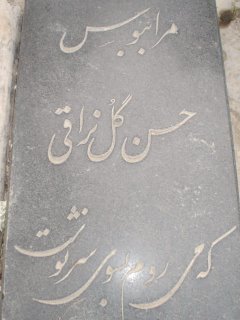 مرا ببوس
حسن گل نراقی
که می روم بسوی سرنوشت